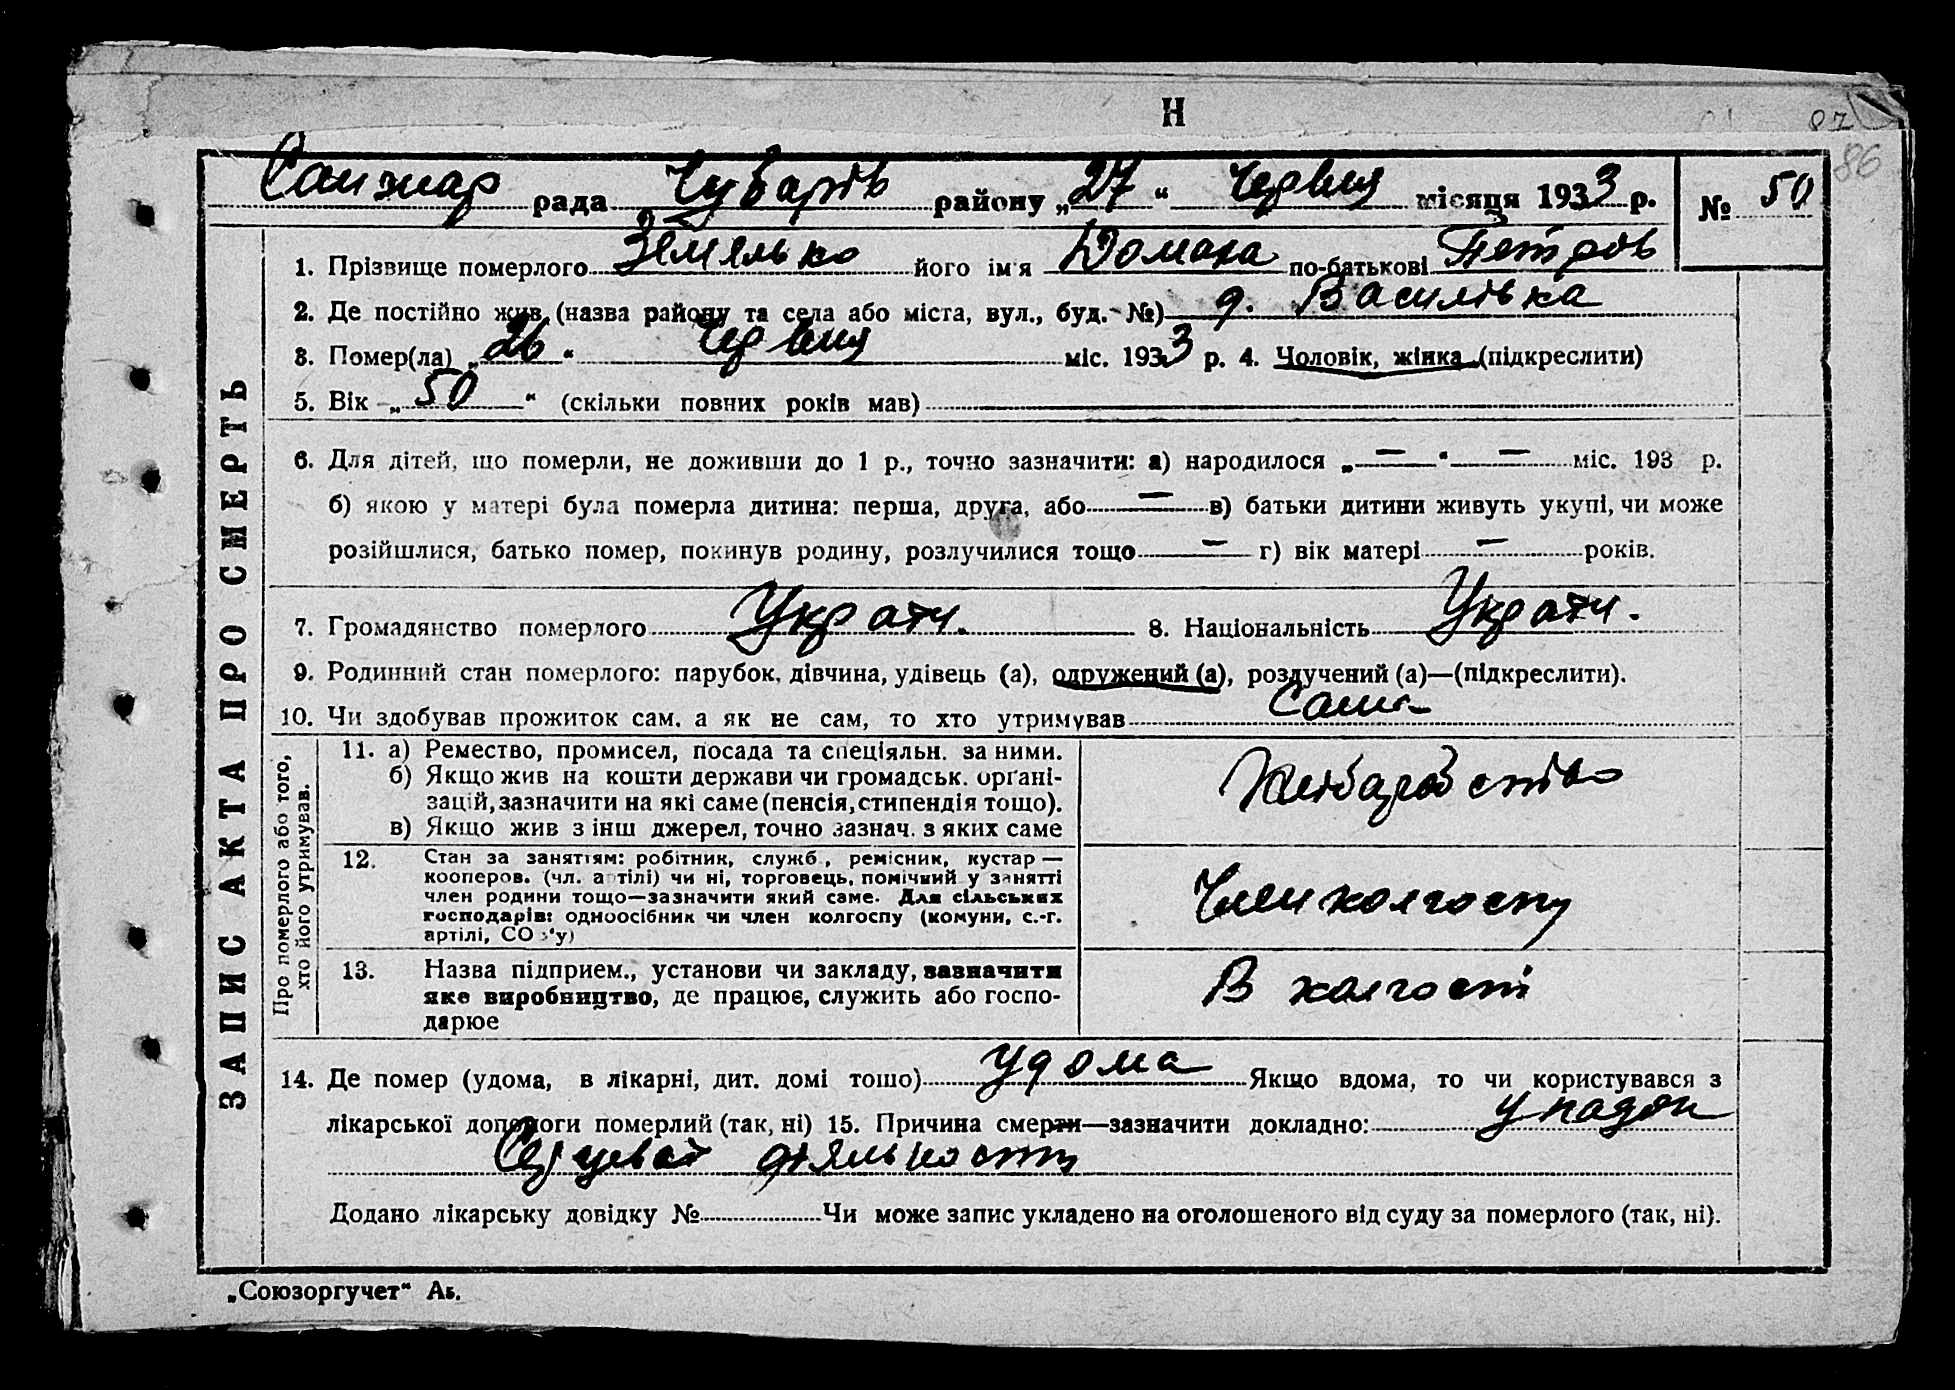 Н
87
86
Санжар рада Чубарів району „27“ Червня місяця 1933 р. № 50
1. Прізвище померлого Земялько його ім'я Домаха по-батькові Петров
2. Де постійно жив (назва району та села або міста, вул., буд. №) д. Василівка
3. Помер(ла) „26“ Червня міс. 1933 р. 4. Чоловік, жінка (підкреслити)
5. Вік „50“ (скільки повних років мав)
6. Для дітей, що померли, не доживши до 1 р., точно зазначити: а) народилося „—“ — міс. 193 р.
б) якою у матері була померла дитина: перша, друга, або — в) батьки дитини живуть укупі, чи може
розійшлися, батько помер, покинув родину, розлучилися тощо — г) вік матері — років.
7. Громадянство померлого Украти. 8. Національність Украти.
9. Родинний стан померлого: парубок, дівчина, удівець (а), одружений (а), розлучений (а)—(підкреслити).
10. Чи здобував прожиток сам, а як не сам, то хто утримував Сама
ЗАПИС АКТА ПРО СМЕРТЬ
Про померлого або того,
хто його утримував.
11. а) Ремество, промисел, посада та спеціяльн. за ними.
б) Якщо жив на кошти держави чи громадськ. орґані-
зацій, зазначити на які саме (пенсія, стипендія тощо).
в) Якщо жив з інш джерел, точно зазнач. з яких саме
Хліборобство
12. Стан за заняттям: робітник, служб., ремісник, кустар —
кооперов. (чл. артілі) чи ні, торговець, помічний у занятті
член родини тощо—зазначити який саме. Для сільських
господарів: одноосібник чи член колгоспу (комуни, с.-г.
артілі, СОЗ'у)
Член колгоспу
13. Назва підприєм., установи чи закладу, зазначити
яке виробництво, де працює, служить або госпо-
дарює
В колгоспі
14. Де помер (удома, в лікарні, дит. домі тощо) удома Якщо вдома, то чи користувався з
лікарської допомоги померлий (так, ні) 15. Причина смерти—зазначити докладно: упадок
Серцевой діяльности
Додано лікарську довідку № Чи може запис укладено на оголошеного від суду за померлого (так, ні).
„Союзоргучет“ Аб.